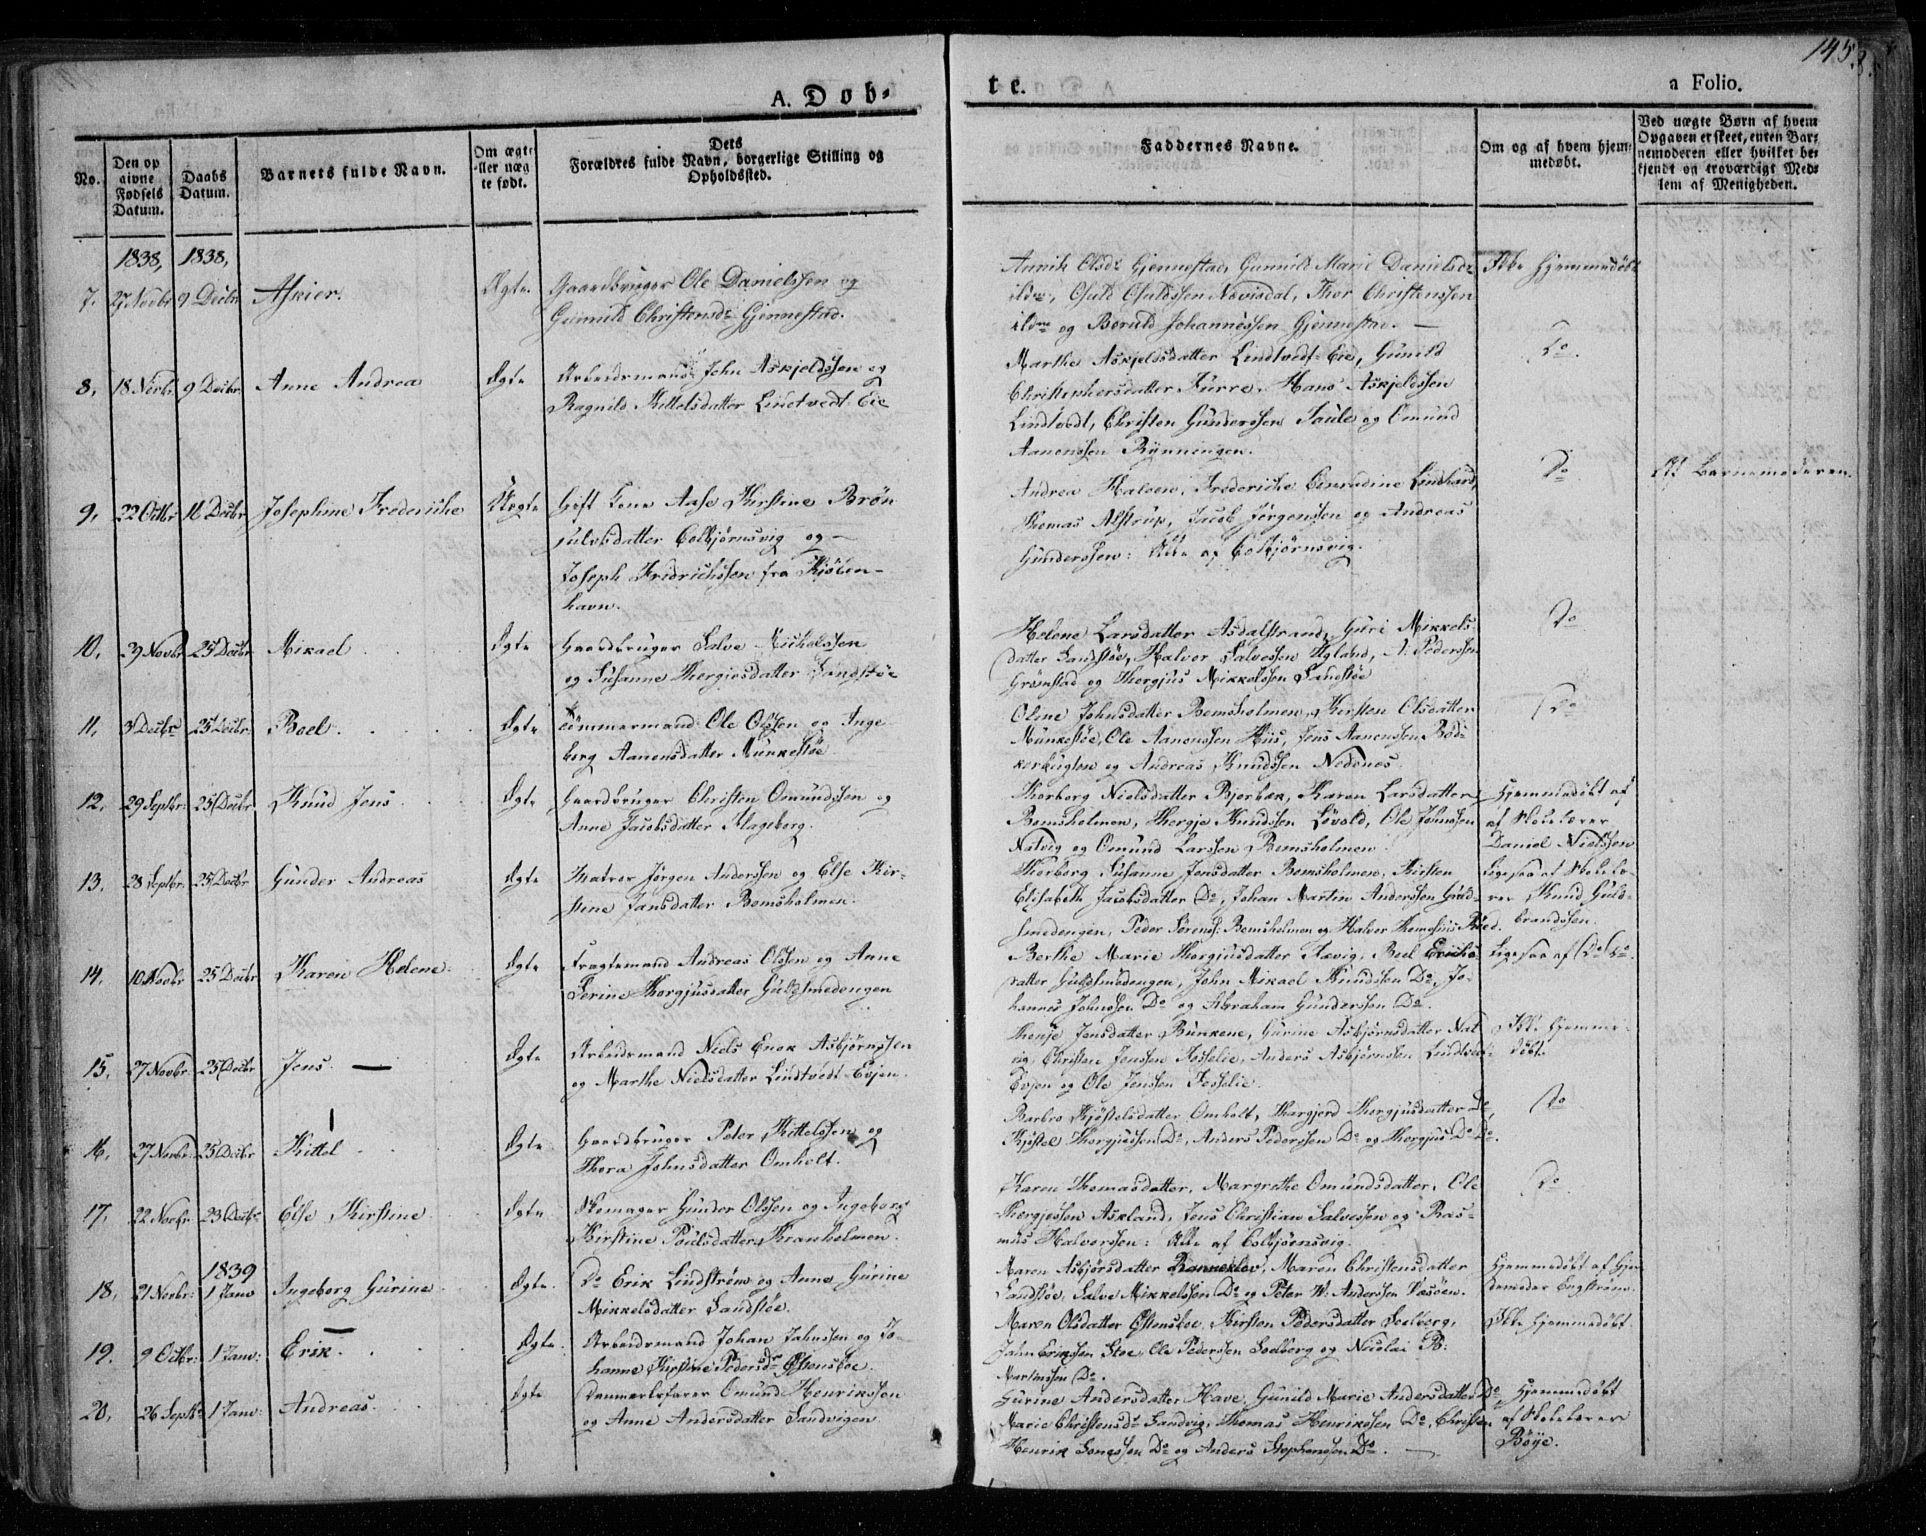 145.
A. Døb-
te.
a Folio.
No.
Den op
givne
Fødsels
Datum.
Daabs
Datum.
Barnets fulde Navn.
Om ægte
eller uæg
te født.
Dets
Forældres fulde Navn, borgerlige Stilling og
Opholdssted.
Faddernes Navne.
Om og af hvem hjem-
medøbt.
Ved uægte Børn af hvem
Opgaven er skeet, enten Bar-
nemoderen eller hvilket be-
kjendt og troværdigt Med-
lem af Menigheden.
1838, 1838,
7. 27 Novbr 9 Decbr Askier. Ægte. Gaardbruger Ole Danielssen og
Gunild Christensdr Gjennestad.
Annik Olsdr Gjennestad, Gunild Marie Danielsdr
ildm, Osuld Osuldssen Nævisdal, Thor Christenssen
ildm og Boruld Johannessen Gjennestad. —
Ikke Hjemmedøbt
8, 18 Novbr 9 Decbr Anne Andrea Ægte Arbeidsmand John Askjeldssen og
Ragnild Kittelsdatter Lindtvedt Eie
Marthe Askjeldsdatter Lindtvedt Eie, Gunild
Christophersdatter Furre, Hans Askjeldssen
Lindtvedt, Christen Gunderssen Saule og Omund
Aanonssen Rønningen.
Do.
9, 22 Octbr 16 Decbr Josephine Frederiche Uægte Gift Kone Aase Kirstine Brøn
julvsdatter Colbjørnsvig og —
Joseph Fridrichssen fra Kjøben-
havn.
Andrea Halven, Frederiche Conradine Lindhard,
Thomas Alstrup, Jacob Jørgenssen og Andreas
Gunderssen: Alle af Colbjørnsvig.
Do
Af Barnemoderen.
10, 29 Novbr 25 Decbr Mikael Ægte Gaardbruger Salve Michelssen
og Susanne Thergiesdatter Sandstøe
Helene Larsdatter Asdalstrand, Guri Mikkels-
datter Sandstøe, Halvor Salvessen Ugland, A. Pederssen
Grømstad og Thergius Mikkelssen Sandstøe
Do
11, 3 Decbr 25 Decbr. Boel. Ægte Tømmermand Ole Olssen og Inge
borg Aanonsdatter Munkestøe
Oline Johnsdatter Bomsholmen, Kirsten Olsdatter
Munkestøe, Ole Aanonssen Hiis, Jens Aanonssen Bød-
kerkuglen og Andreas Knudssen Nedenes.
Do
12, 29 Septbr. 25 Decbr Knud Jens Ægte Gaardbruger Christen Omundssen og
Anne Jacobsdatter Klageborg.
Thorborg Nielsdatter Bjorbæk, Karen Larsdatter
Bomsholmen, Thergje Knudssen Løvold, Ole Johnssen
Natvig og Omund Larssen Bomsholmen
Hjemmedøbt af
af Skolelærer
Daniel Nielssen
13. 28 Septbr. 25 Decbr Gunder Andreas Ægte Matros Jørgen Anderssen og Else Kir-
stine Jansdatter Bomsholmen.
Thorborg Susanne Jensdatter Bomsholmen, Kirsten
Elisabeth Jacobsdatter Do, Johan Martin Anderssen Guld-
smedengen, Peder Sørens: Bomsholmen og Halvor Thomesius Ried.
Ligesaa af Skolelæ-
rer Knud Guld-
brandssen.
14. 10 Novbr 25 Decbr Karen Helene. Ægte Fragtemand Andreas Olssen og Anne
Serine Thorgjusdatter Guldsmedengen
Berthe Marie Thorgjusdatter Sævig, Boel Erichs-
datter Guldsmedengen, John Mikael Knudssen Do, Jo-
hannes Johnssen Do og Abraham Gunderssen Do
Ligesaa af Do Do.
15. 27 Novbr 25 Decbr Jens. — Ægte Arbeidsmand Niels Enok Asbjørnssen
og Marthe Nielsdatter Lindtvedt Evjen.
Jensdatter Bunkene, Gurine Asbjørnsdatter Nat
vig, Christen Jenssen Fosselie, Anders Asbjørnssen Lindtvedt
Evjen og Ole Jenssen Fosselie.
Ikke Hjemme-
døbt.
16, 27 Novbr 25 Decbr Kittel Ægte Gaardbruger Peter Kittelssen og
Thora Johnsdatter Omholt.
Barbro Kjøstelsdatter Omholt, Thargjerd Thorgjusdatter
Kjøstel Thorgjussen Do, Anders Pederssen Do og Thorgjus Do Do.
Do
17, 22 Novbr 23 Decbr Else Kirstine Ægte. Skomager Gunder Olssen og Ingeborg
Kirstine Poulsdatter Kranholmen.
Karen Thomasdatter, Margrethe Omundsdatter, Ole
Thergjessen Askland, Jens Christian Salvessen og Ras-
mus Halvorssen: Alle af Colbjørnsvig.
Do.
1839
18, 21 Novbr: 1 Janv Ingeborg Gurine Ægte. Do Erik Lindstrøm og Anne Gurine
Mikkelsdatter Sandstøe.
Maren Asbjørsdatter Ranneklev, Maren Christensdatter
Sandstøe, Salve Mikkelssen Do og Peter W. Anderssen Væsøen.
Hjemmedøbt af Gjor
demoder Engstrøm.
19. 9 Octbr: 1 Janv: Erik. Ægte. Arbeidsmand Johan Jahnssen og Jo-
hanne Kirstine Pedersdr Østenskoe.
Maren Olsdatter Østenskoe, Kirsten Pedersdatter Solberg,
Jahn Erikssen Stoe, Ole Pederssen Solberg og Nicolai B:
Martinssen Do.
Ikke Hjemmedøbt
20, 26 Septbr 1 Janv: Andreas. Ægte Danmarksfarer Omund Henrikssen
og Anne Andersdatter Sandvigen
Gurine Andersdatter Have, Gunild Marie Andersdatter Do
Marie Christensdr Sandvig, Thomas Henrikssen Do, Christen
Henrik Jonassen Do og Anders Stephenssen Do. —
Hjemmedøbt
af Skolelærer
Bøye.